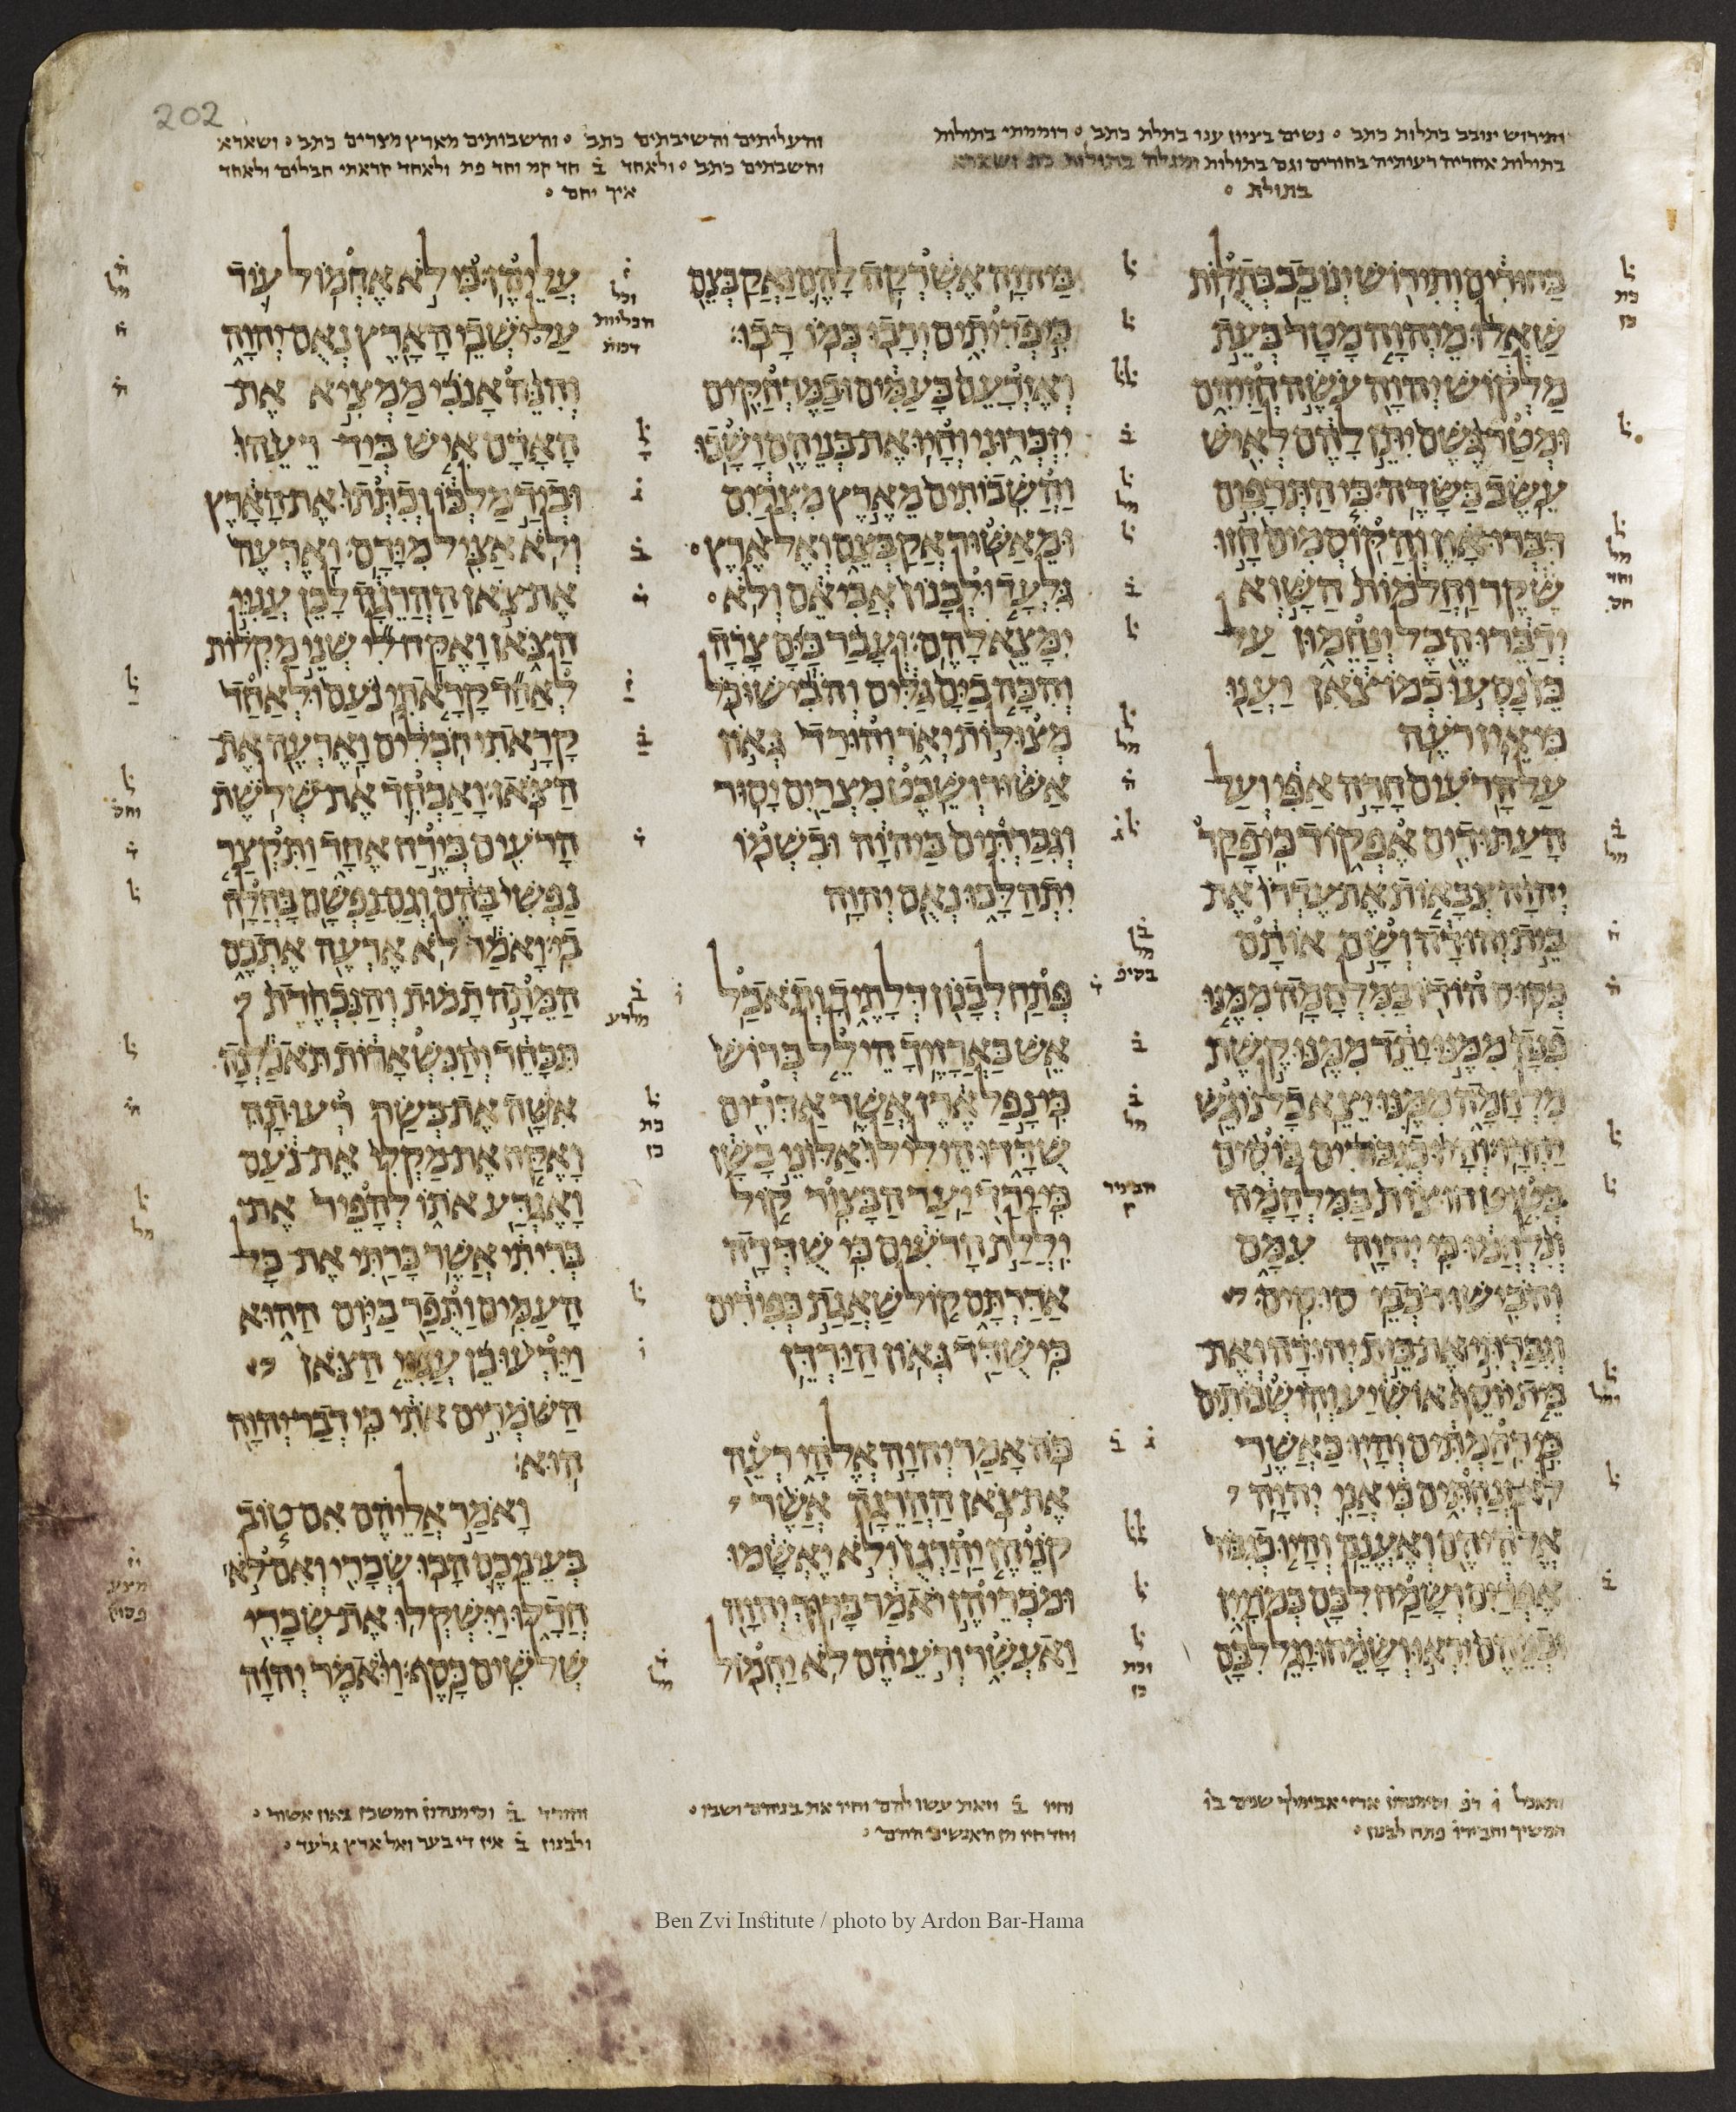 202
ותירוש ינובב בתלות כתב ° נשים בציון ענו בתלת כתב ° רוממתי בתולות
בתולות אחריה רעותיה בחורים וגם בתולות ומגלה בתולות כת ושארא
בתולת °
והעליתים והשיבתים כתב ° והשבותים מארץ מצרים כתב ° ושארא
והשבתים כתב ° ולאחד ב חד קמ וחד פת ולאחד קראתי חבלים ולאחד
איך יחם °
בחורים ותירוש ינובב בתלות
שאלו מיהוה מטר בעת
מלקוש יהוה עשה חזיזים
ומטר גשם יתן להם לאיש
עשב בשדה׃ כי התרפים
דברו און והקוסמים חזו
שקר וחלמות השוא
ידברו הבל ינחמון על
כן נסעו כמו צאן יענו
כי אין רעה
על הרעים חרה אפי ועל
העתודים אפקוד כי פקד
יהוה צבאות את עדרו את
בית יהודה ושם אותם
כסוס הודו במלחמה׃ ממנו
פנה ממנו יתד ממנו קשת
מלחמה ממנו יצא כל נוגש
יחדו׃ והיו כגברים בוסים
בטיט חוצות במלחמה
ונלחמו כי יהוה עמם
והבישו רכבי סוסים׃
וגברתי את בית יהודה ואת
בית יוסף אושיע והושבותים
כי רחמתים והיו כאשר
לא זנחתים כי אני יהוה
אלהיהם ואענם׃ והיו כגבור
אפרים ושמח לבם כמו יין
ובניהם יראו ושמחו יגל לבם
ביהוה׃ אשרקה להם ואקבצם
כי פדיתים ורבו כמו רבו׃
ואזרעם בעמים ובמרחקים
יזכרוני וחיו את בניהם ושבו׃
והשבותים מארץ מצרים
ומאשור אקבצם ואל ארץ
גלעד ולבנון אביאם ולא
ימצא להם׃ ועבר בים צרה
והכה בים גלים והבישו כל
מצולות יאר והורד גאון
אשור ושבט מצרים יסור׃
וגברתים ביהוה ובשמו
יתהלכו נאם יהוה
פתח לבנון דלתיך ותאכל
אש בארזיך׃ הילל ברוש
כי נפל ארז אשר אדרים
שדדו הילילו אלוני בשן
כי ירד יער הבצור׃ קול
יללת הרעים כי שדדה
אדרתם קול שאגת כפירים
כי שדד גאון הירדן
כה אמר יהוה אלהי רעה
את צאן ההרגה׃ אשר
קניהן יהרגן ולא יאשמו
ומכריהן יאמר ברוך יהוה
ואעשר ורעיהם לא יחמול
עליהן׃ כי לא אחמול עוד
על ישבי הארץ נאם יהוה
והנה אנכי ממציא את
האדם איש ביד רעהו
וביד מלכו וכתתו את הארץ
ולא אציל מידם׃ וארעה
את צאן ההרגה לכן עניי
הצאן ואקח לי שני מקלות
לאחד קראתי נעם ולאחד
קראתי חבלים וארעה את
הצאן׃ ואכחד את שלשת
הרעים בירח אחד ותקצר
נפשי בהם וגם נפשם בחלה
בי׃ ואמר לא ארעה אתכם
המתה תמות והנכחדת
תכחד והנשארות תאכלנה
אשה את בשר רעותה׃
ואקח את מקלי את נעם
ואגדע אתו להפיר את
בריתי אשר כרתי את כל
העמים׃ ותפר ביום ההוא
וידעו כן עניי הצאן
השמרים אתי כי דבר יהוה
הוא׃
ואמר אליהם אם טוב
בעיניכם הבו שכרי ואם לא
חדלו וישקלו את שכרי
שלשים כסף׃ ויאמר יהוה
ותאכל ו דפ וסימנהון ארזי אבימלך שנים בו
המשיך וחבירו פתח לבנון °
וחיו ב וזאת עשו להם וחיו את בניהם ושבו °
והורד ב וסימנהון המשכן גאון אשור °
ולבנון ב אין די בער ואל ארץ גלעד °
Ben Zvi Institute / photo by Ardon Bar-Hama